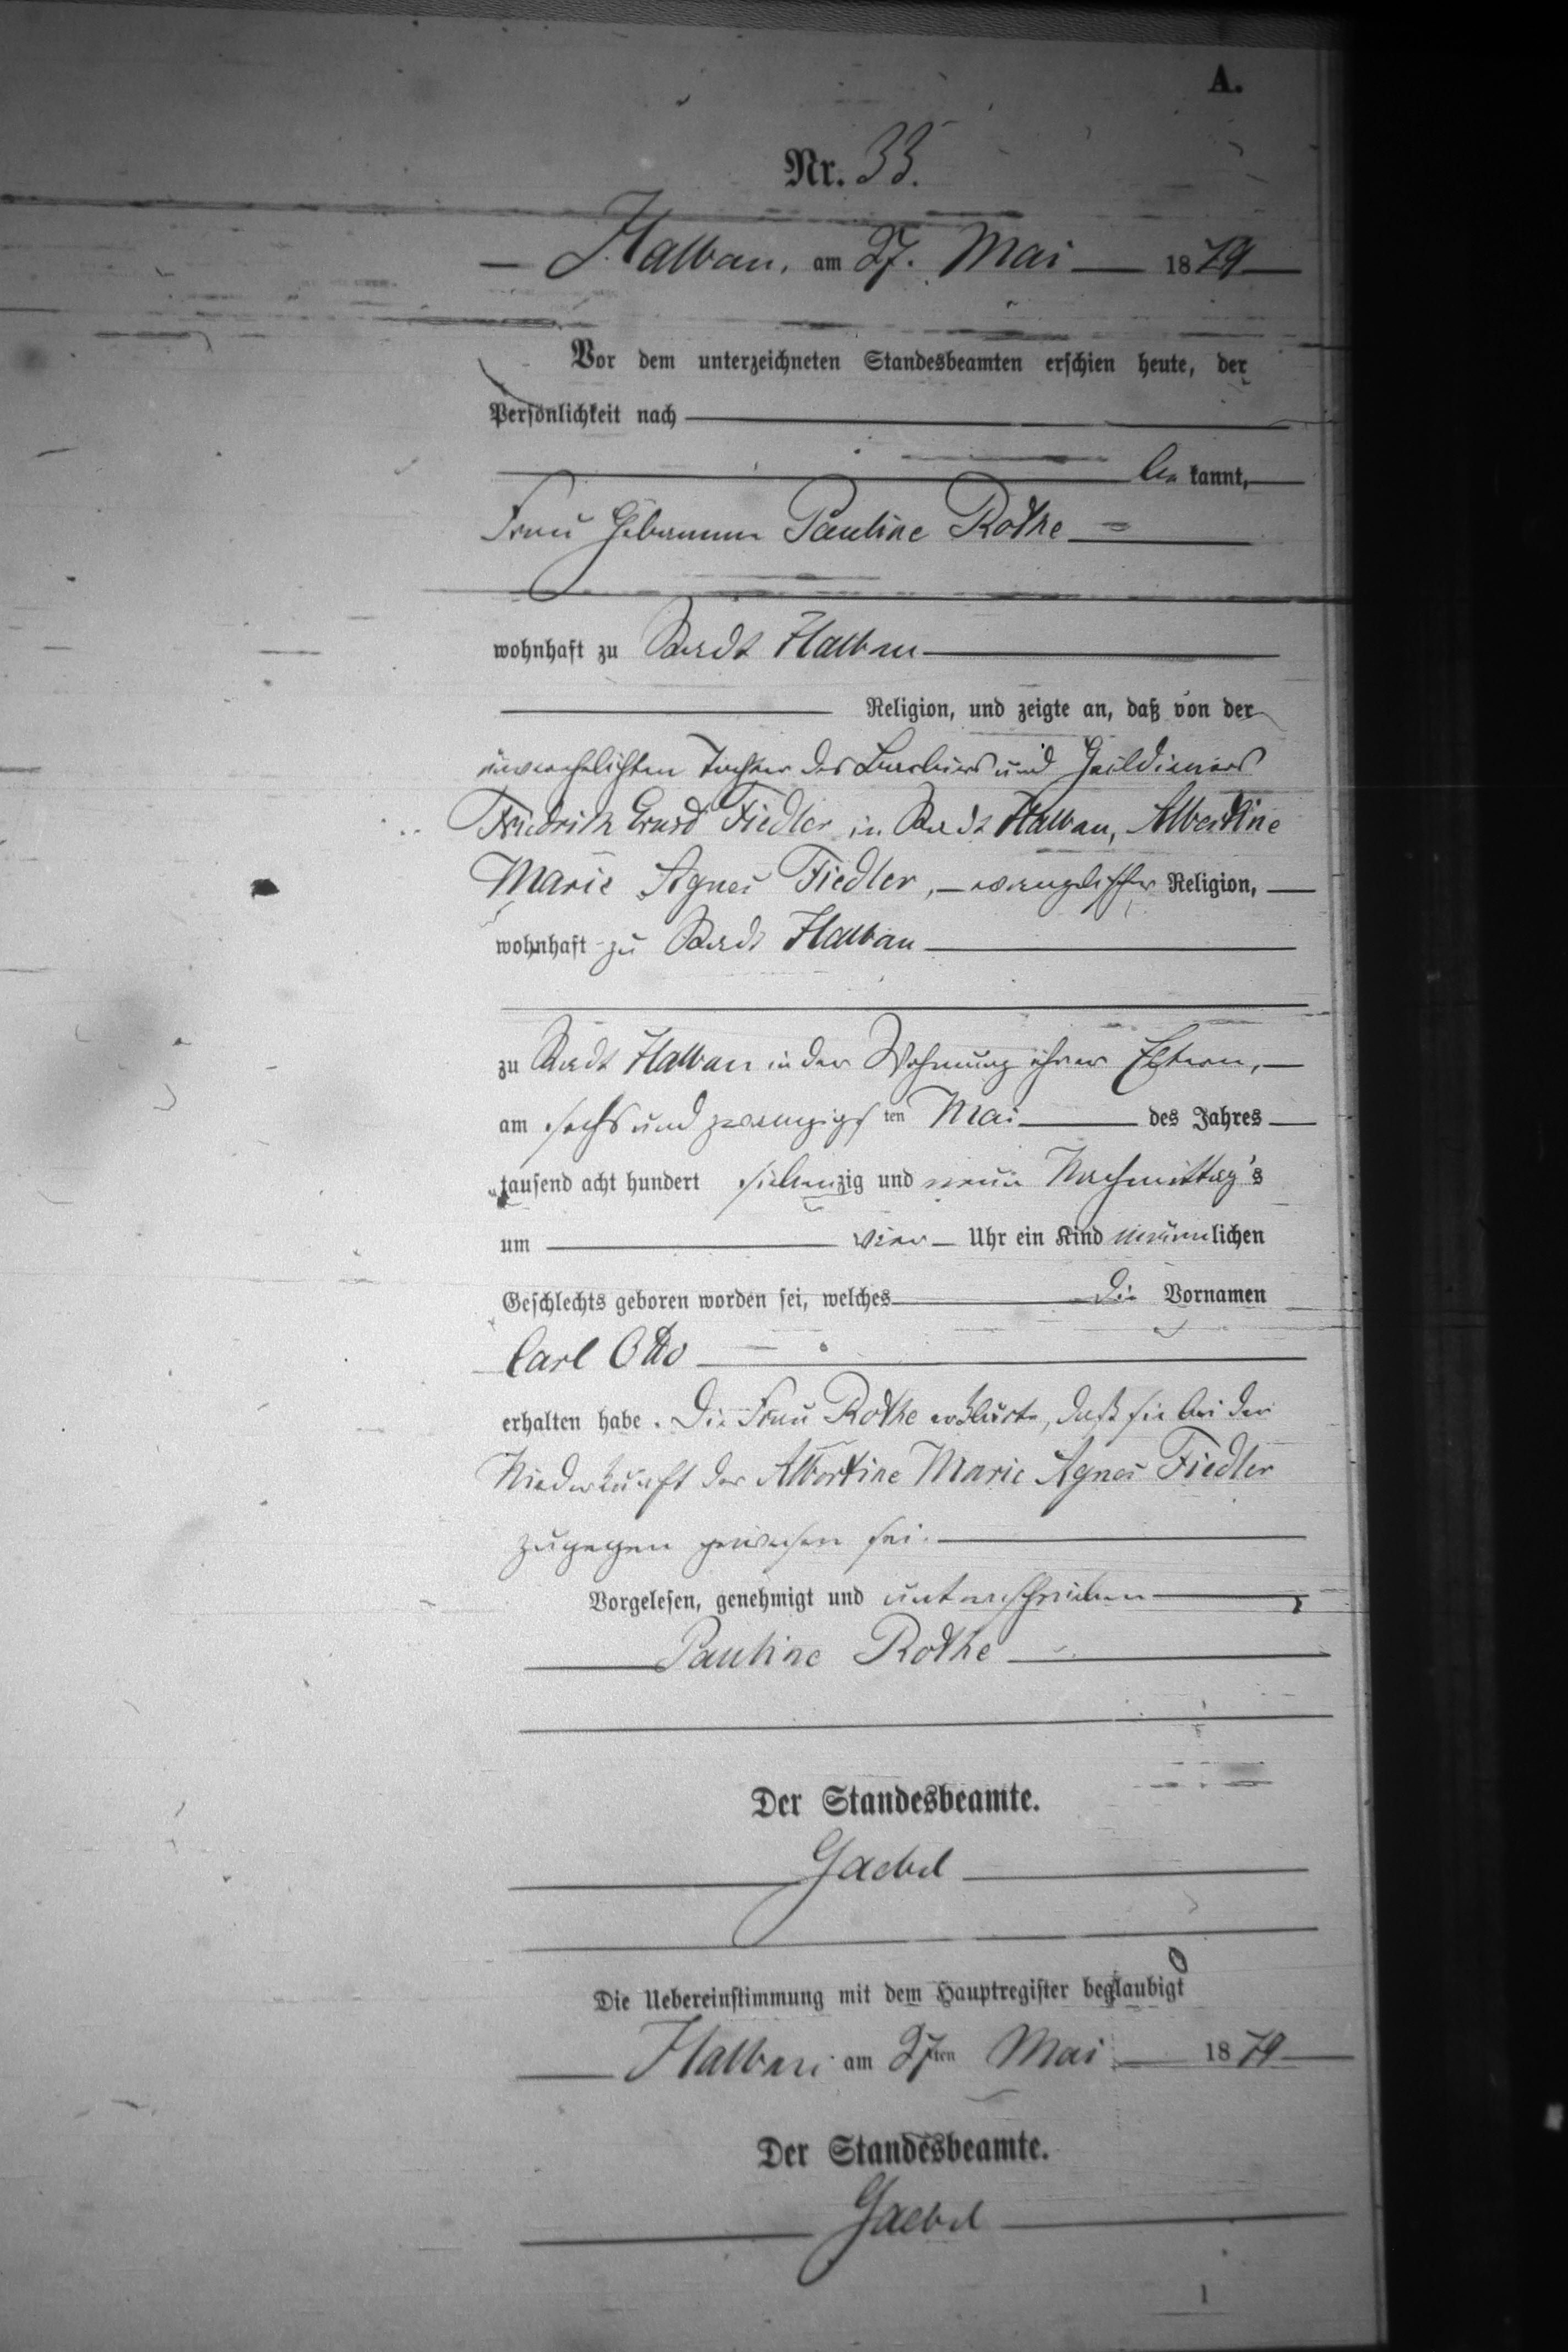 A.
Nr. 33.
Halbau, am 27. Mai 1879
Vor dem unterzeichneten Standesbeamten erschien heute, der
Persönlichkeit nach
bekannt,
Frau Hebamme Pauline Rothe
wohnhaft zu Stadt Halbau
Religion, und zeigte an, daß von der
unverehelichten Tochter des und
Friedrich Fiedler in Stadt Halbau, Albertine
Marie Agnes Fiedler, evangelischer Religion,
wohnhaft zu Stadt Halbau
zu Stadt Halbau in der Wohnung ihrer Eltern,
am sechs und zwanzigsten Mai des Jahres
tausend acht hundert siebenzig und neun Nachmittag's
um vier Uhr ein Kind männlichen
Geschlechts geboren worden sei, welches die Vornamen
Carl Otto
erhalten habe. Die Frau Rothe erklärte, daß sie bei der
Niederkunft der Albertine Marie Agnes Fiedler
zugegen gewesen sei.
Vorgelesen, genehmigt und unterschrieben
Pauline Rothe
Der Standesbeamte.
Gaebel
Die Uebereinstimmung mit dem Hauptregister beglaubigt
Halbau am 27ten Mai 1879
Der Standesbeamte.
Gaebel